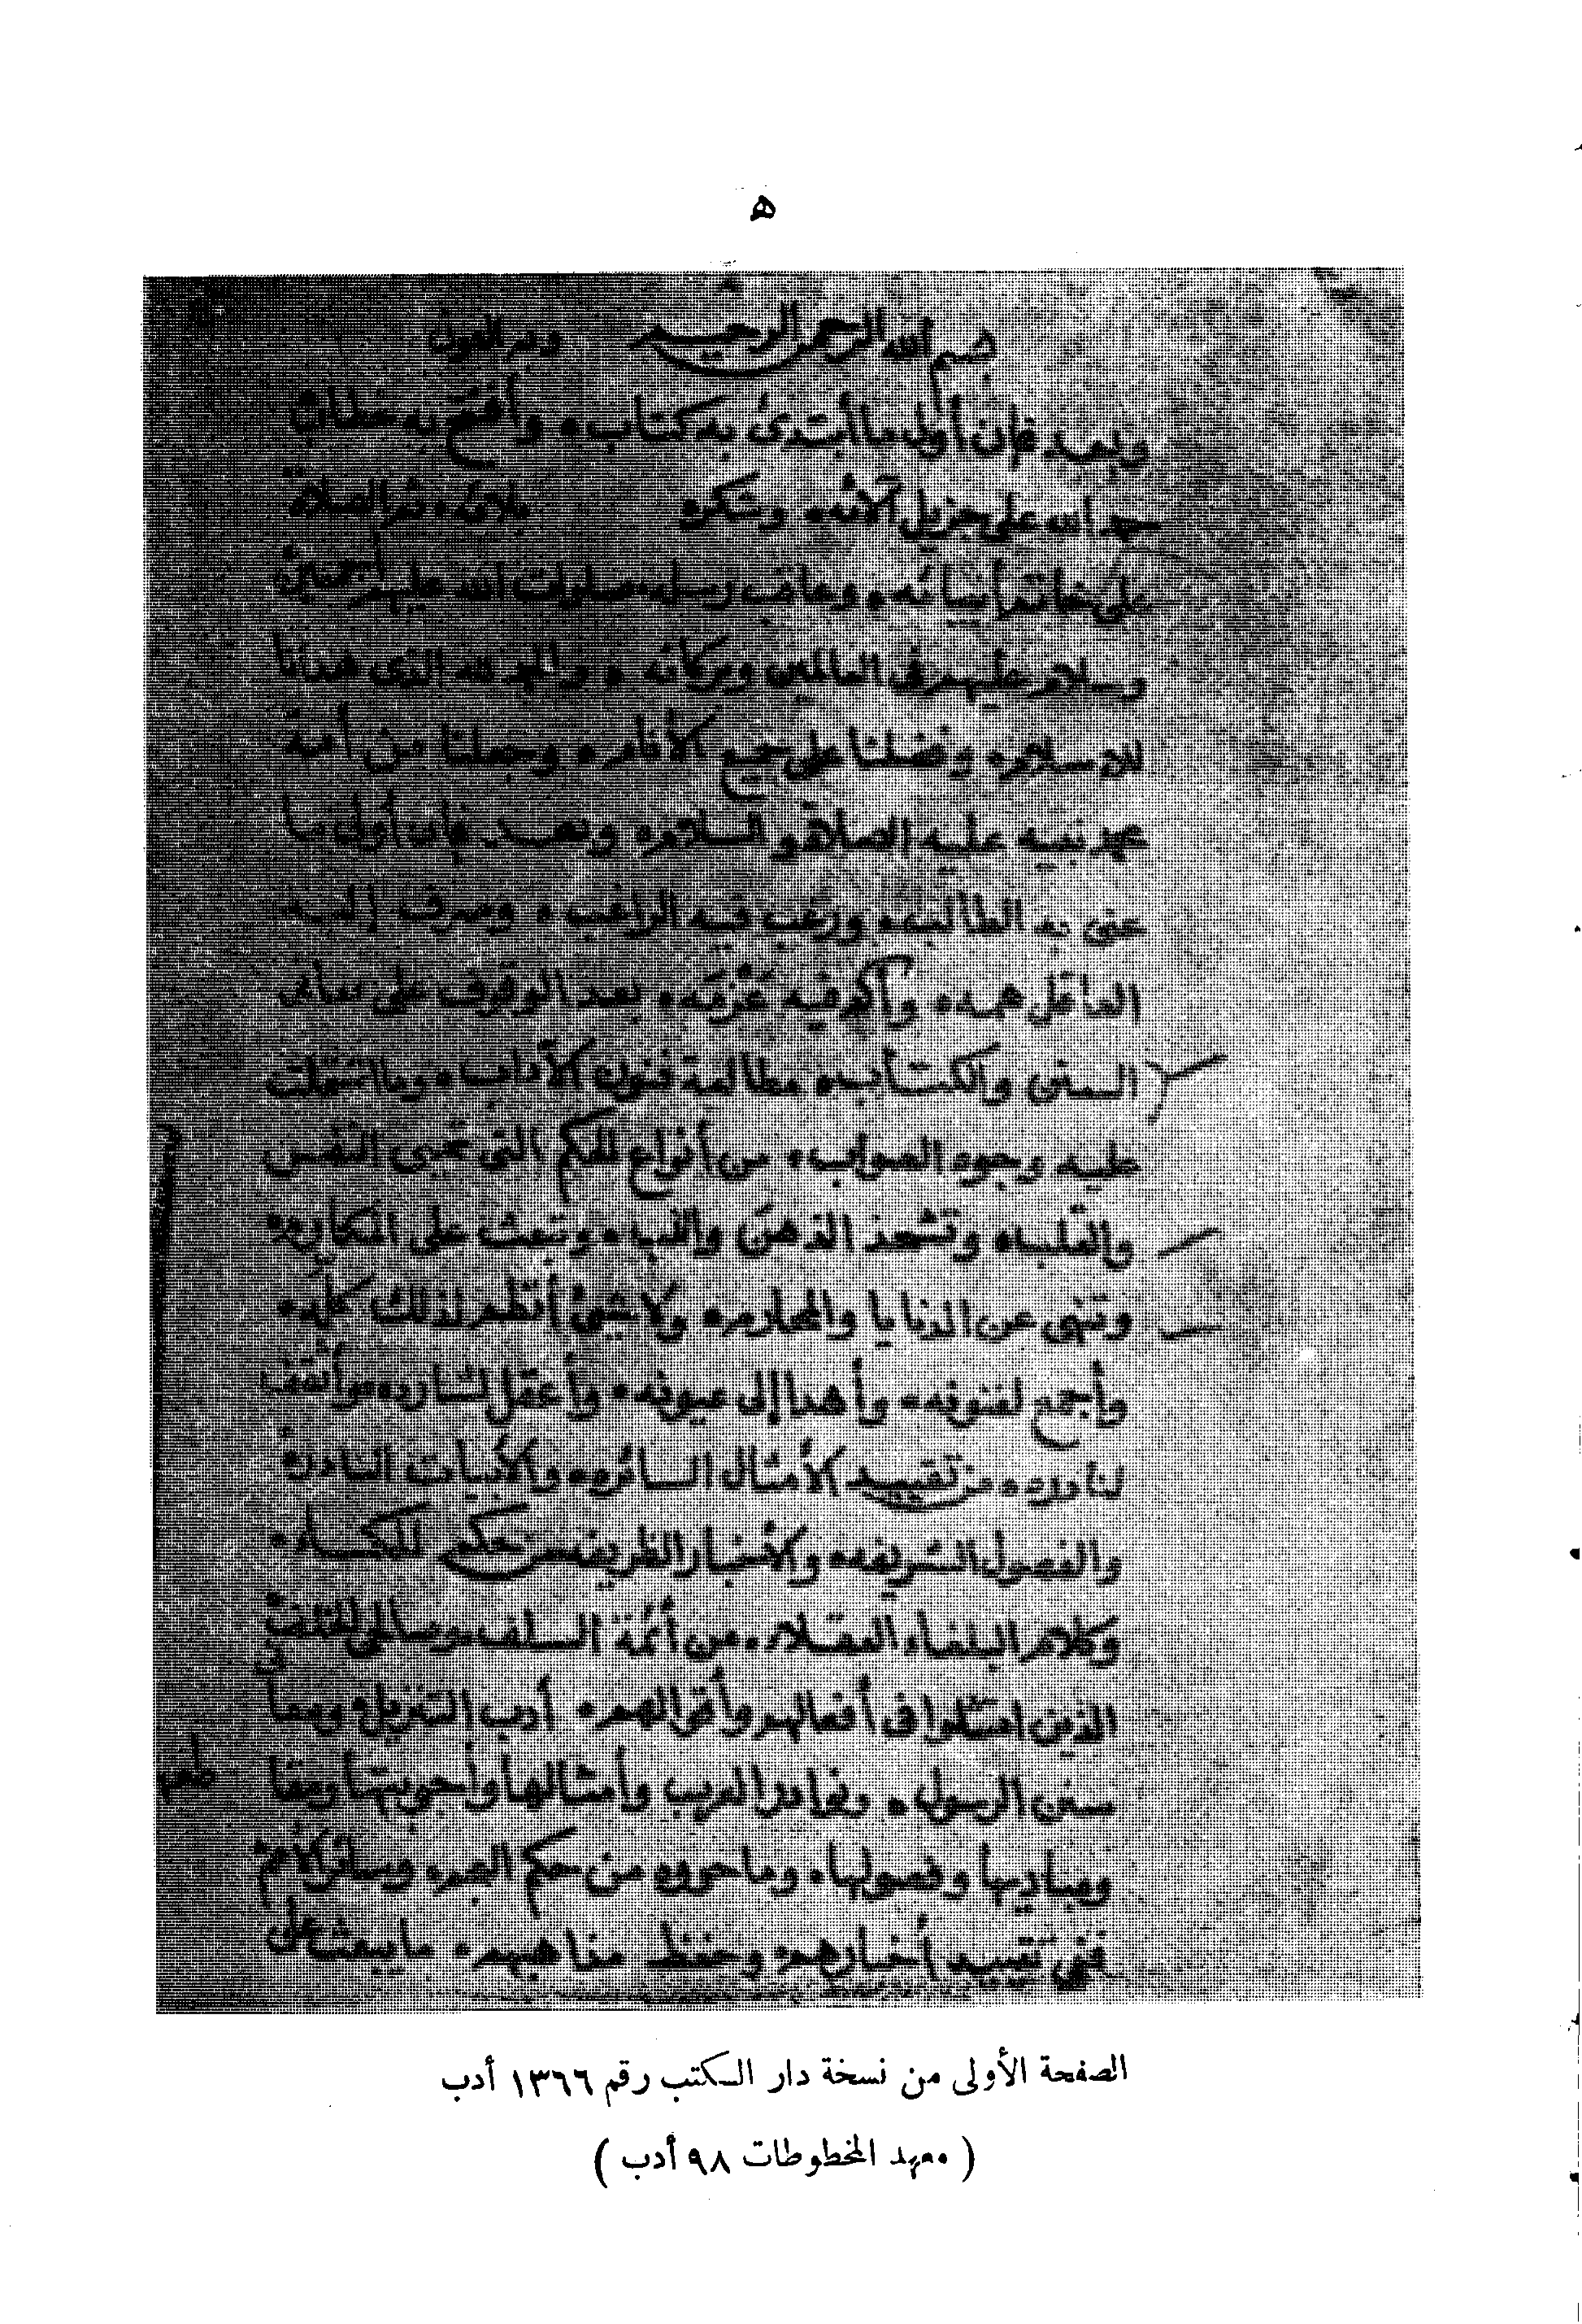 ه
بسم الله الرحمن الرحيم وبه العون
وبعد فإن أول ما أبتدئ به كتاب ، وأفتتح به خطاب
حمد الله على جزيل آلائه ، وشكره بلائه ، ثم الصلاة
على خاتم أنبيائه ، وعاقب رسله صلوات الله عليهم أجمعين
وسلام عليهم في العالمين وبركاته ، والحمد لله الذى هدانا
للإسلام ، وفضلنا على جميع الأنام ، وجعلنا من أمة
محمد نبيه عليه الصلاة والسلام ، وبعد فإن أولى ما
عنى به الطالب ، ورغب فيه الراغب ، وصرف إليه
العاقل همه ، وأكد فيه عزمه ، بعد الوقوف على معانى
السنن والكتاب ، مطالعة فنون الآداب ، وما اشتملت
عليه وجوه الصواب ، من أنواع الحكم التى تحيى النفس
والقلب ، وتشحذ الذهن واللب ، وتبعث على المكارم ،
وتنهى عن الدنايا والمحارم ، ولا شيئ أنظم لذلك كله ،
وأجمع لفنونه ، وأهدا إلى عيونه ، وأعقل لشارده ، وأثقف
لنادره ، من تقييد الأمثال السائره ، والأبيات النادرة
والفصول الشريفه ، والأخبار الظريفه من حكم الحكماء ،
وكلام البلغاء العقلاء ، من أئمة السلف ، وصالحى الخلف
الذين امتثلوا فى أفعالهم وأقوالهم ، أدب التنزيل ، ومعانى
سنن الرسول ، ونوادر العرب وأمثالها وأجوبتها ومقاطعها
ومباديها وفصولها ، وما حووه من حكم العجم ، وسائر الأمم
ففي تقييد أخبارهم ، وحفظ مذاهبهم ، ما يبعث على
الصفحة الأولى من نسخة دار الكتب رقم ١٣٦٦ أدب
( معهد المخطوطات ٩٨ أدب )